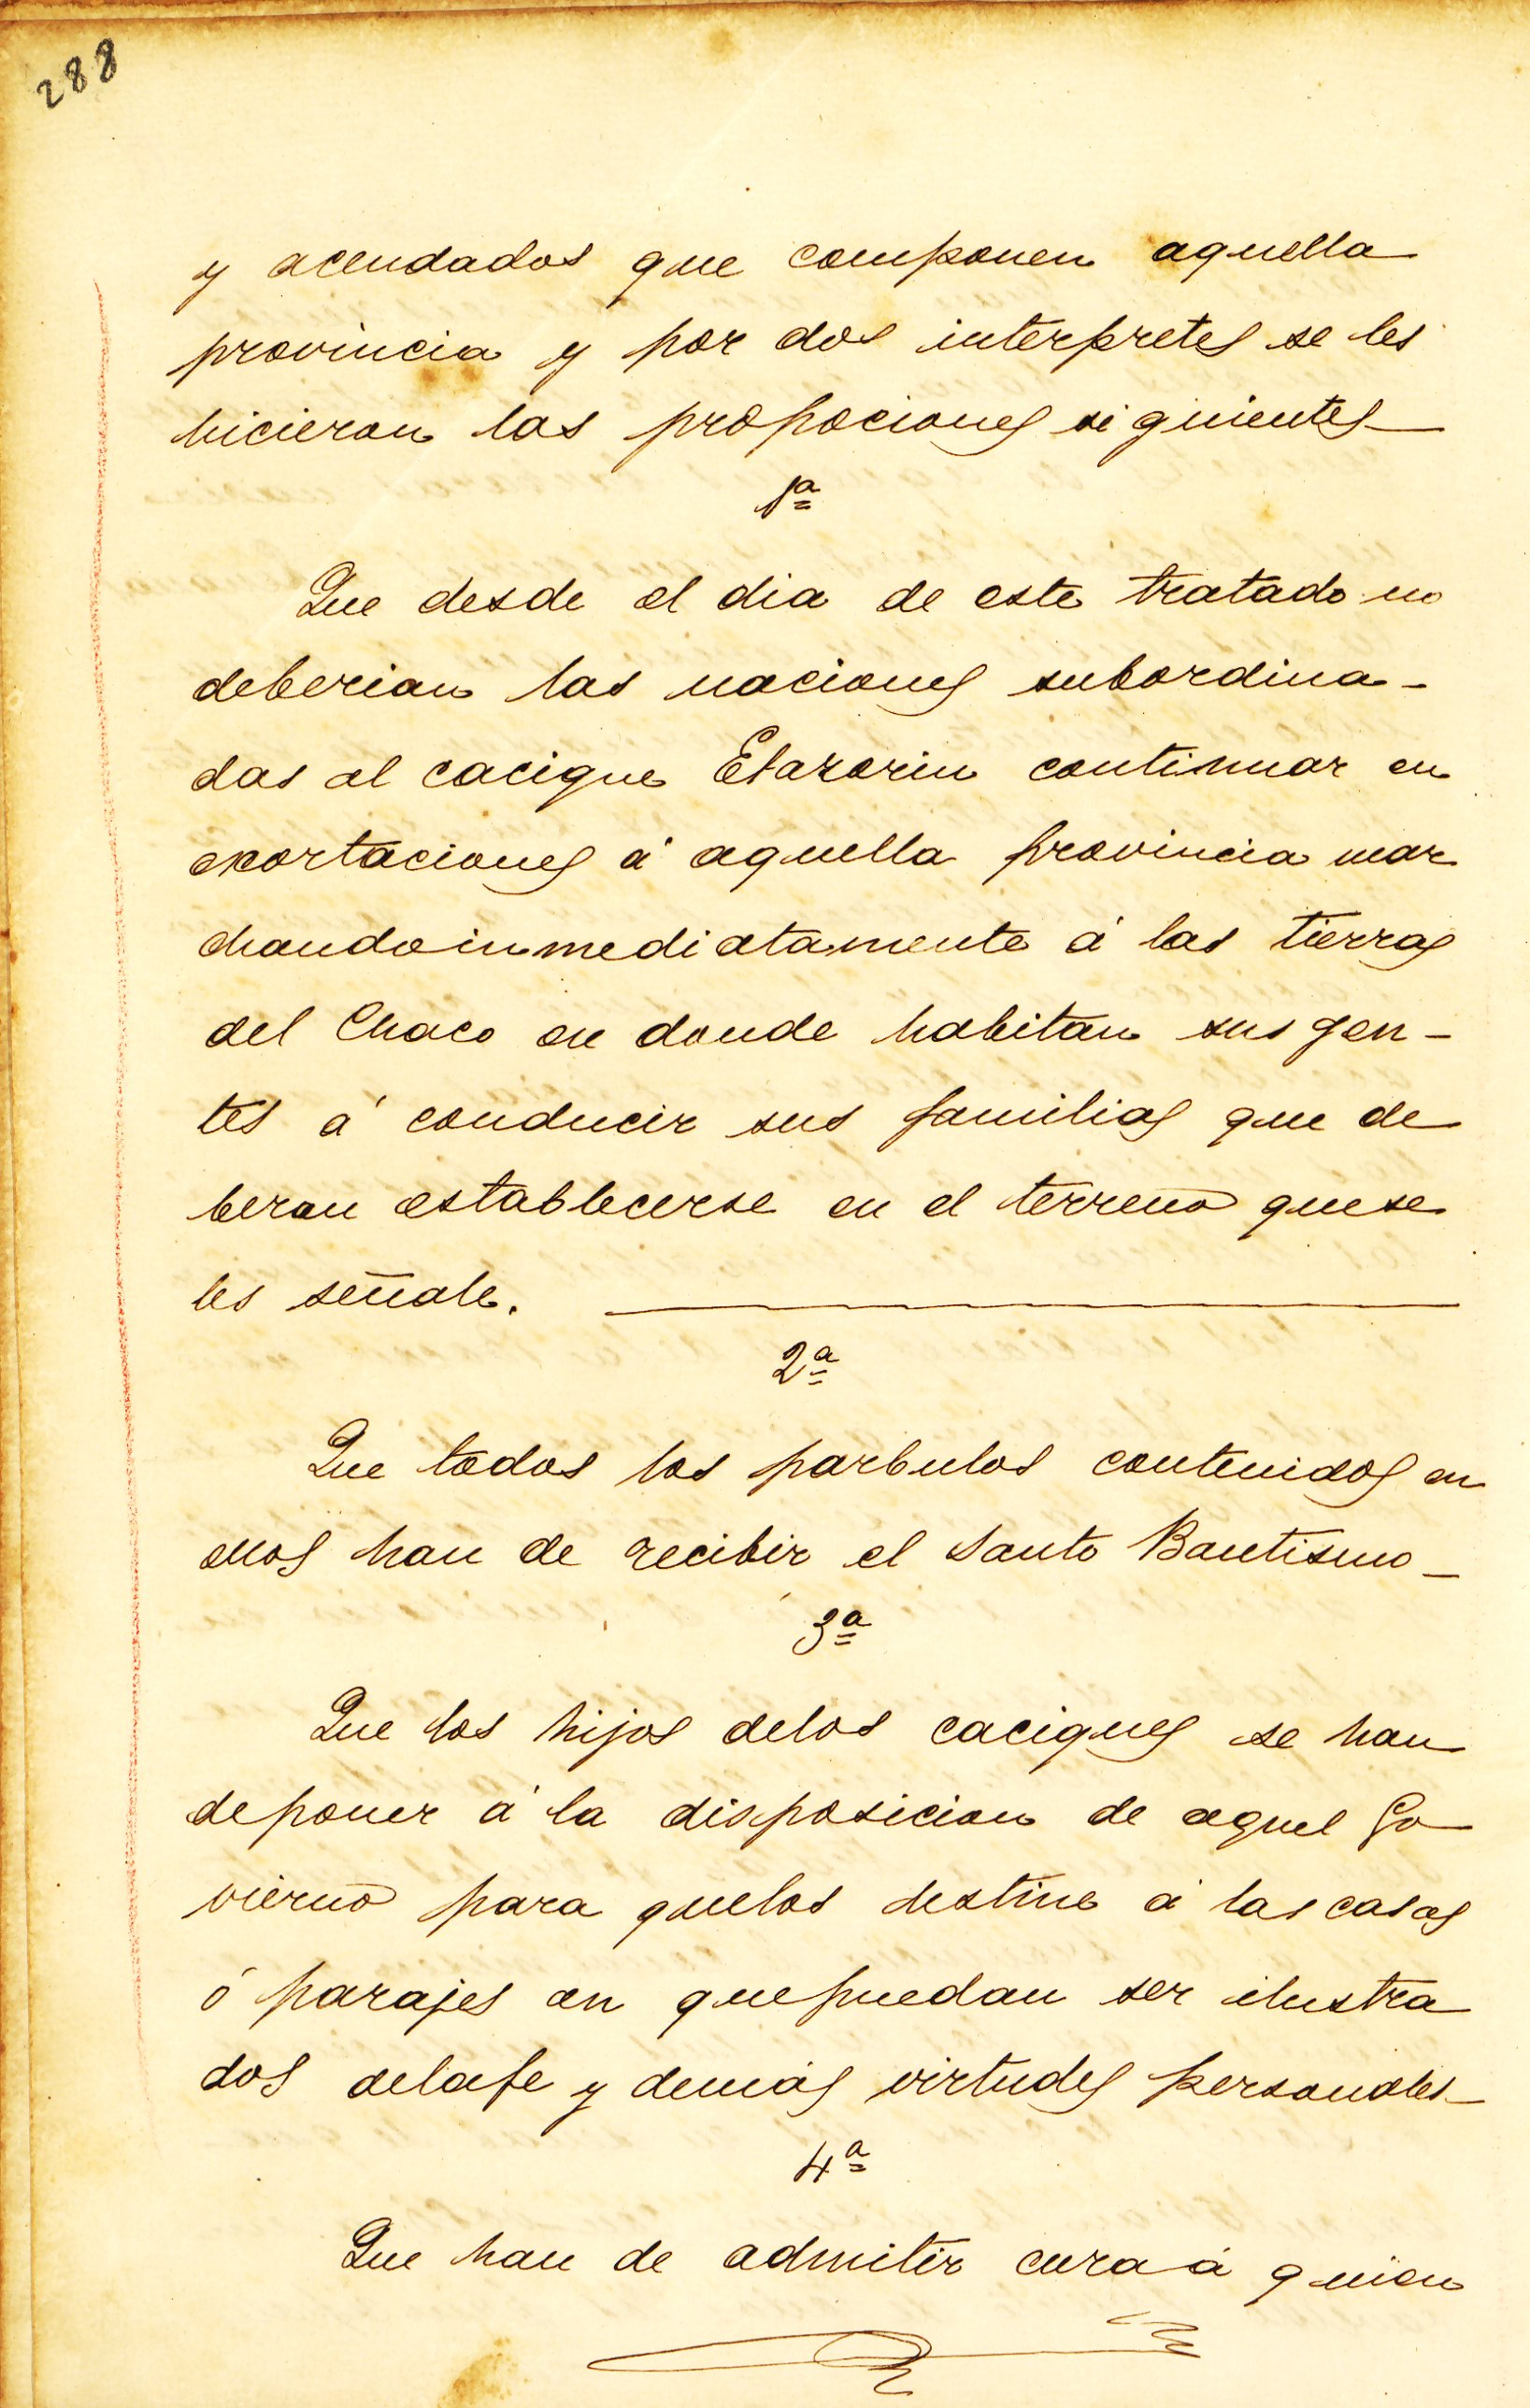 288
y acendados que componen aquella
provincia y por dos interpretes se les
hicieron las propociones siguientes—
1ª
Que desde el dia de este tratado no
deberian las naciones subordina-
das al cacique Etazorin continuar en
exortaciones á aquella provincia mar
chando inmediatamente á las tierras
del Chaco en donde habitan sus gen-
tes á conducir sus familias que de
beran establecerse en el terreno que se
les señale. —
2ª
Que todos los parbulos contenidos en
ellos han de recibir el Santo Bautismo—
3ª
Que los hijos delos caciques se han
deponer á la disposicion de aquel Go
vierno para quelos destine á las casas
ó parajes en quepuedan ser ilustra
dos delafe y demás virtudes personales—
4ª
Que han de admitir cura á quien